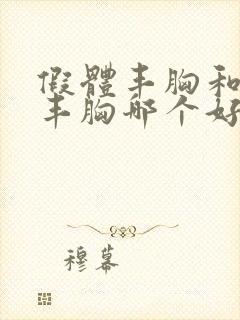 假體丰胸和
丰胸哪个好
穆幕